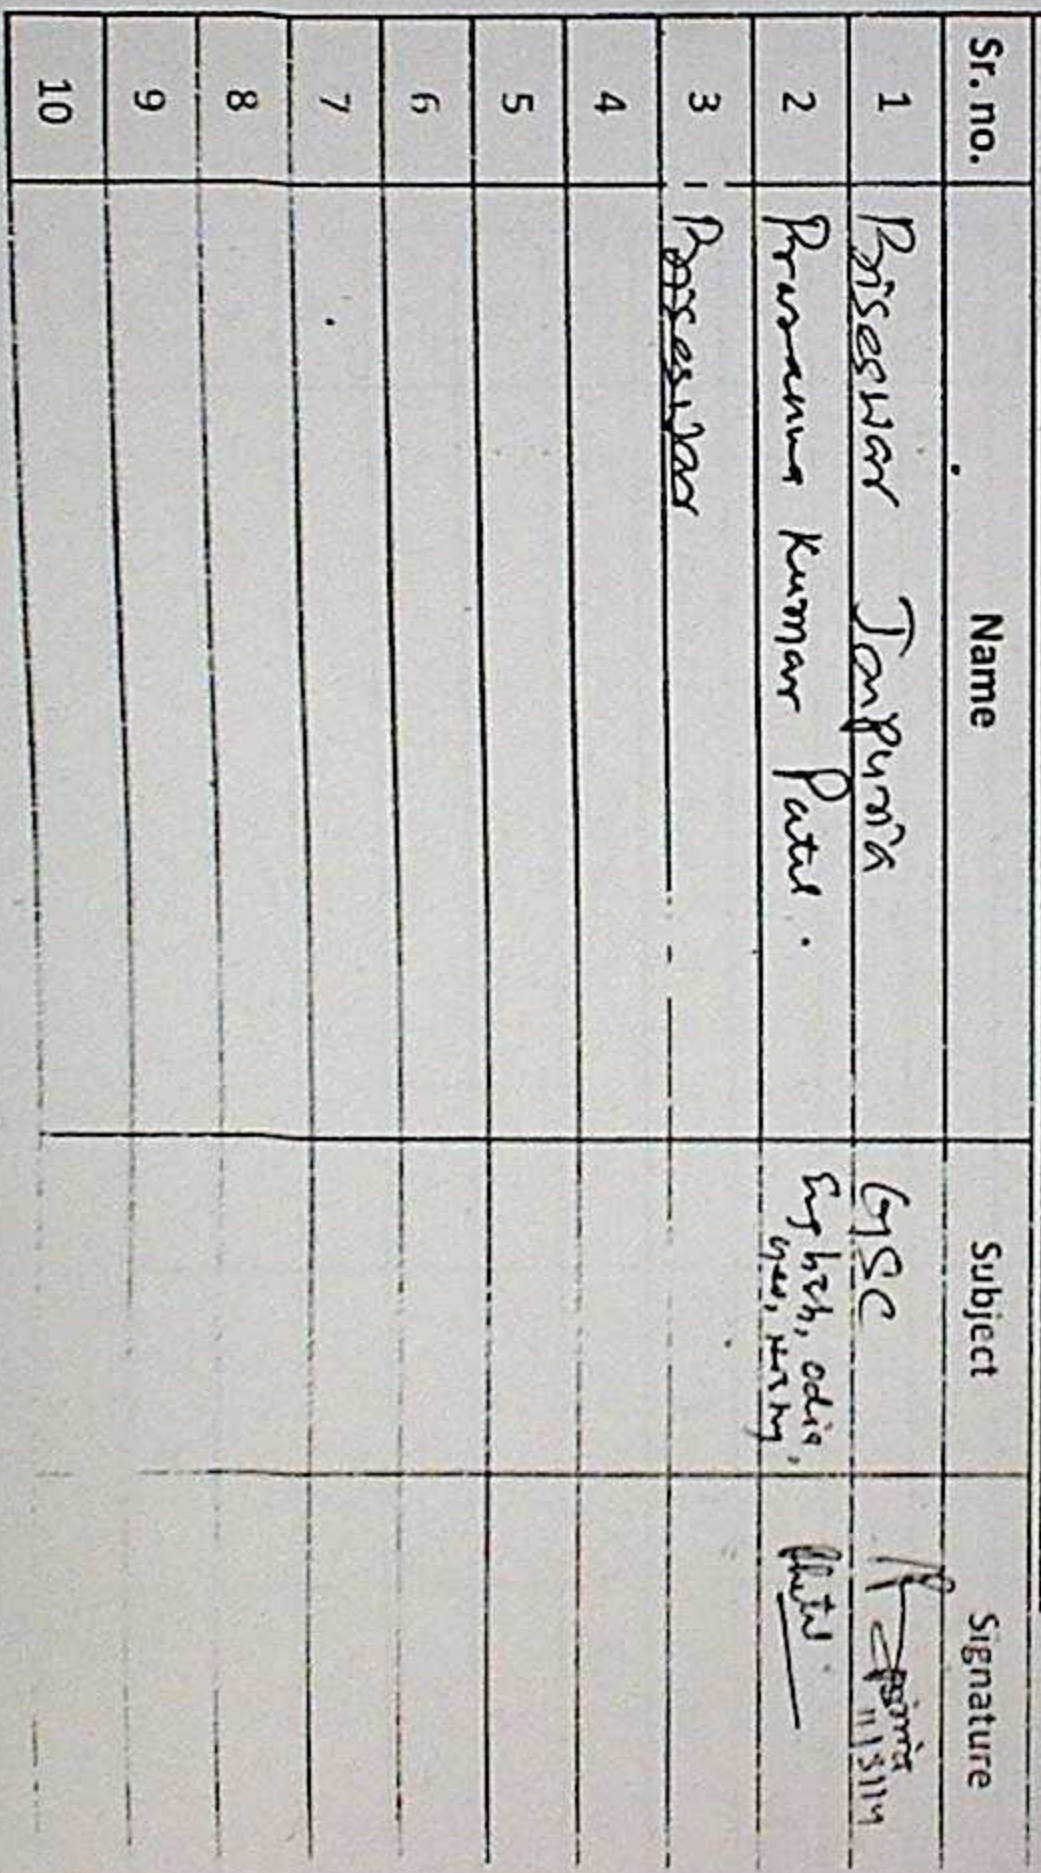 Sr. no. Name Subject Signature
1 Biseswar Janpuria GSC
2 Prasanna Kumar Patel. English, odia,
3
4
5
6
7
8
9
10